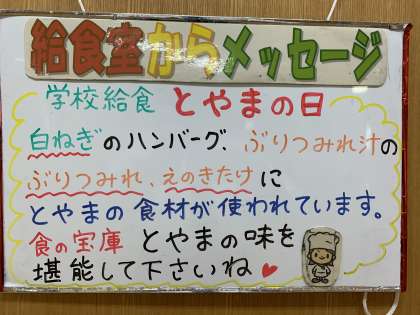 給食室からメッセージ
学校給食 とやまの日
白ねぎのハンバーグ、ぶりつみれ汁の
ぶりつみれ、えのきたけに
とやまの食材が使われています。
食の宝庫 とやまの味を
堪能して下さいね